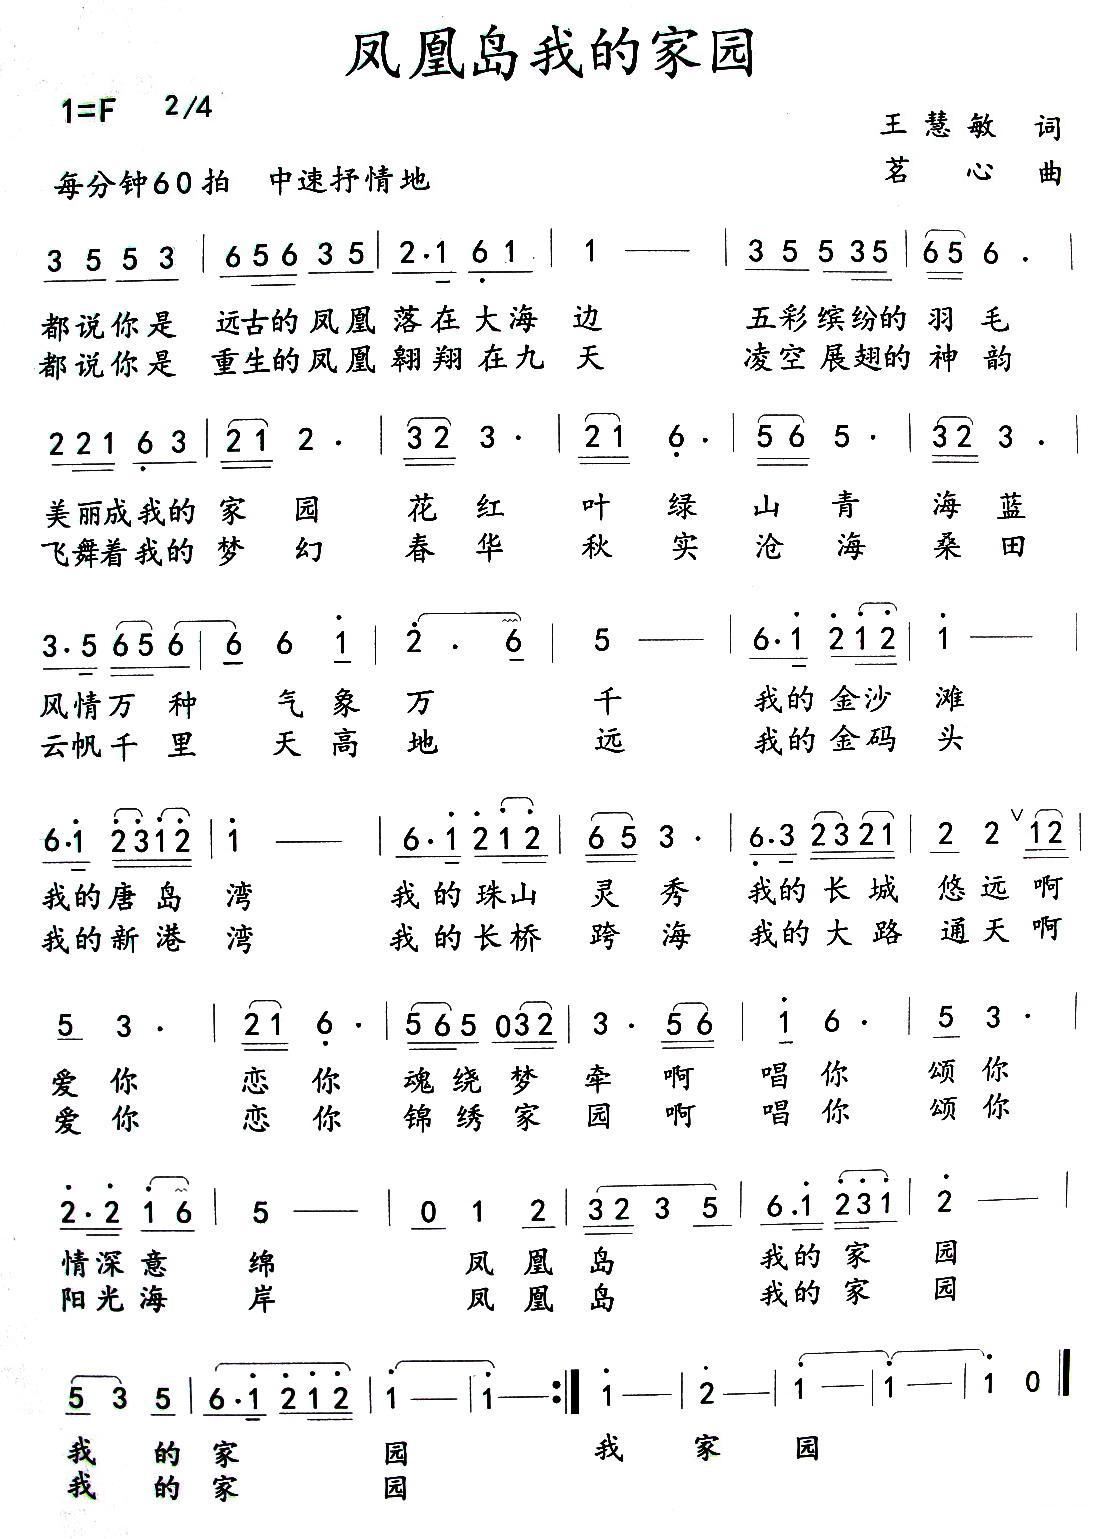 凤凰岛我的家园
1=F 2/4
王慧敏 词
每分钟60拍 中速抒情地
茗心 曲
3 5 5 3 | 6 5 6 3 5 | 2·1 6 1 | 1 — | 3 5 5 3 5 | 6 5 6 · |
都说你是 远古的凤凰 落在大海 边 五彩缤纷的羽毛
都说你是 重生的凤凰 翱翔在九 天 凌空展翅的神韵
2 2 1 6 3 | 2 1 2 · | 3 2 3 · | 2 1 6 · | 5 6 5 · | 3 2 3 · |
美丽成我的 家园 花红 叶绿 山青 海蓝
飞舞着我的 梦幻 春华 秋实 沧海 桑田
3·5 6 5 6 | 6 6 1 | 2 · 6 | 5 — | 6·1 2 1 2 | 1 — |
风情万种 气象 万 千 我的金沙 滩
云帆千里 天高 地 远 我的金码 头
6·1 2 3 1 2 | 1 — | 6·1 2 1 2 | 6 5 3 · | 6·3 2 3 2 1 | 2 2 ∨ 1 2 |
我的唐岛 湾 我的珠山 灵秀 我的长城 悠远啊
我的新港 湾 我的长桥 跨海 我的大路 通天啊
5 3 · | 2 1 6 · | 5 6 5 0 3 2 | 3 · 5 6 | 1 6 · | 5 3 · |
爱你 恋你 魂绕梦 牵啊 唱你 颂你
爱你 恋你 锦绣家 园啊 唱你 颂你
2·2 1 6 | 5 — | 0 1 2 | 3 2 3 5 | 6·1 2 3 1 | 2 — |
情深意 绵 凤凰 岛 我的家 园
阳光海 岸 凤凰 岛 我的家 园
5 3 5 | 6·1 2 1 2 | 1 — | 1 — :‖ 1 — | 2 — | 1 — | 1 — | 1 0 ‖
我 的 家 园 我 家 园
我 的 家 园